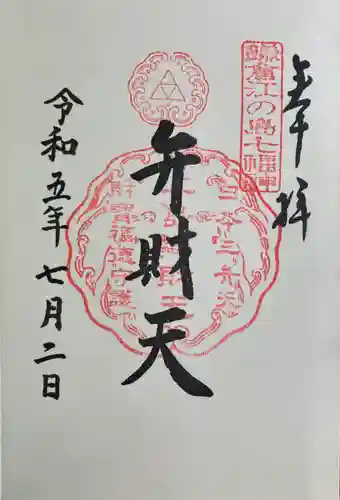 奉拝
鎌倉江の島七福神
弁財天
令和五年七月二日